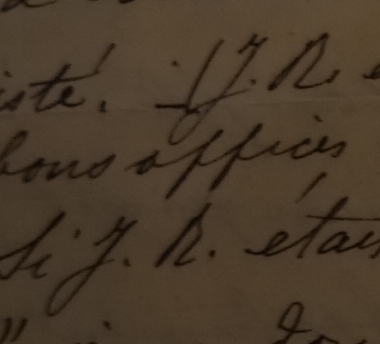 isté. - (J. R.
bons offices
Si J. R. étai
"